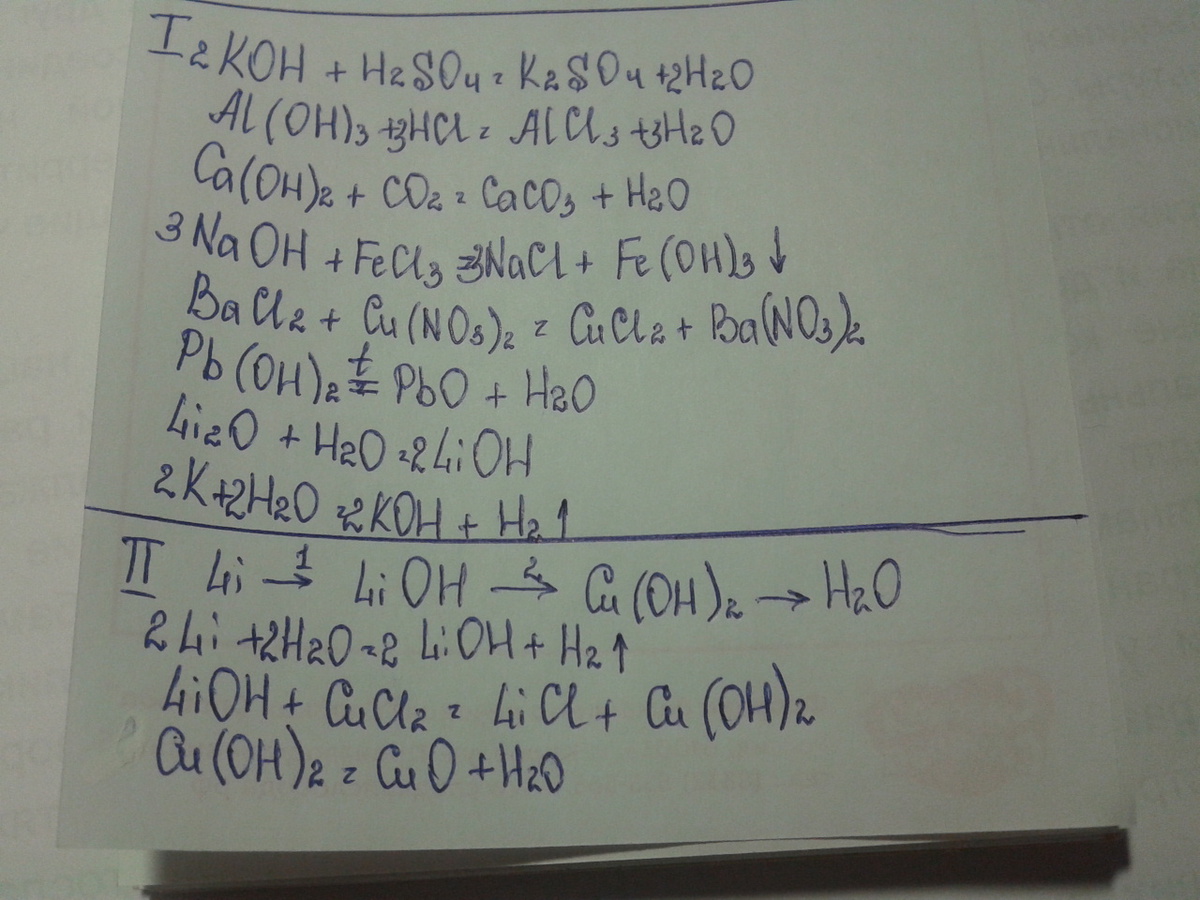 I 2KOH + H2SO4 = K2SO4 + 2H2O
Al(OH)3 + 3HCl = AlCl3 + 3H2O
Ca(OH)2 + CO2 = CaCO3 + H2O
3NaOH + FeCl3 = 3NaCl + Fe(OH)3↓
BaCl2 + Cu(NO3)2 = CuCl2 + Ba(NO3)2
Pb(OH)2 t= PbO + H2O
Li2O + H2O = 2LiOH
2K + 2H2O = 2KOH + H2↑
II Li 1→ LiOH 2→ Cu(OH)2 → H2O
2Li + 2H2O = 2LiOH + H2↑
LiOH + CuCl2 = LiCl + Cu(OH)2
Cu(OH)2 = CuO + H2O